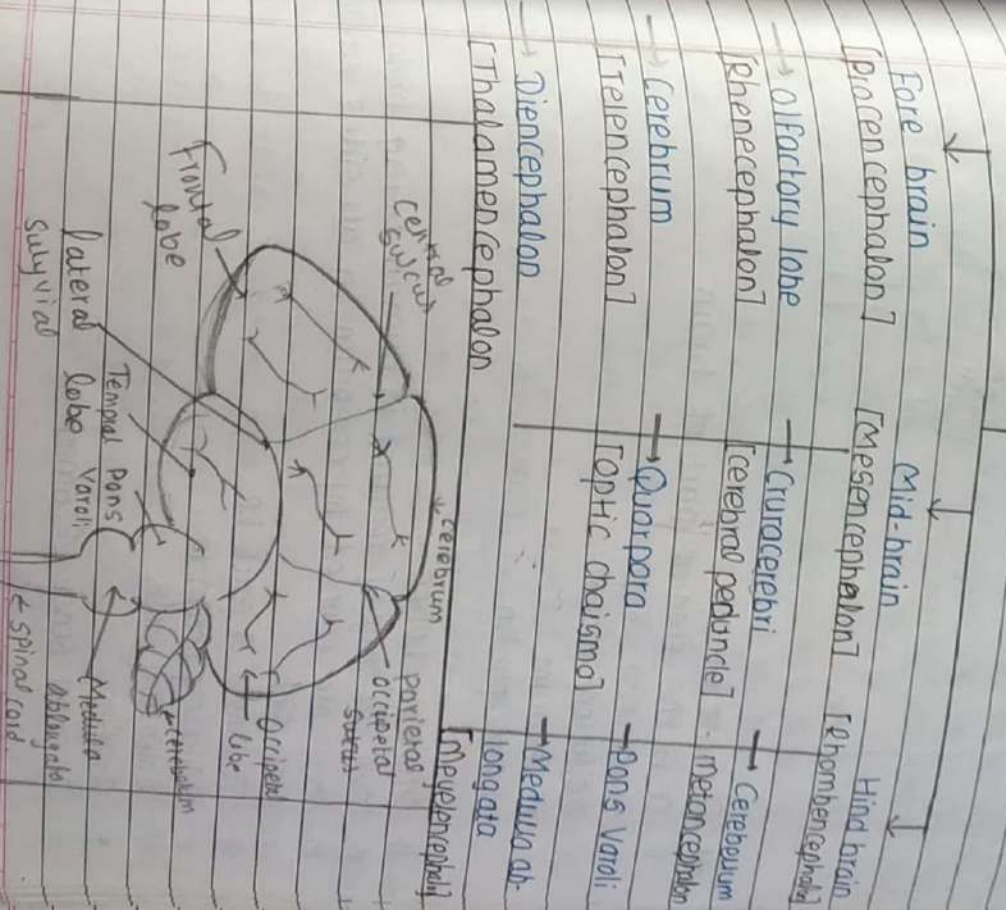 Fore brain
[Procencephalon]
→ Olfactory lobe
[Rhenecephalon]
→ Cerebrum
[Telencephalon]
→ Diencephalon
[Thalamencephalon
Mid-brain
[Mesencephalon]
→ Cruracerebri
[cerebral peduncle]
→ Quarpora
[optic chaismo]
Hind brain
[Rhombencephalon]
→ Cerebellum
metancephalon
→ Pons Varoli
→ Medulla ab-
longata
[Myelencephalon]
cerebrum
central
sulcus
Frontal
lobe
parietal
occipetal
sulcus
Occipetal
lobe
lateral
sulyvial
Tempral
lobe
Pons
Varoli
cerebelum
Medula
ablongata
spinal coid